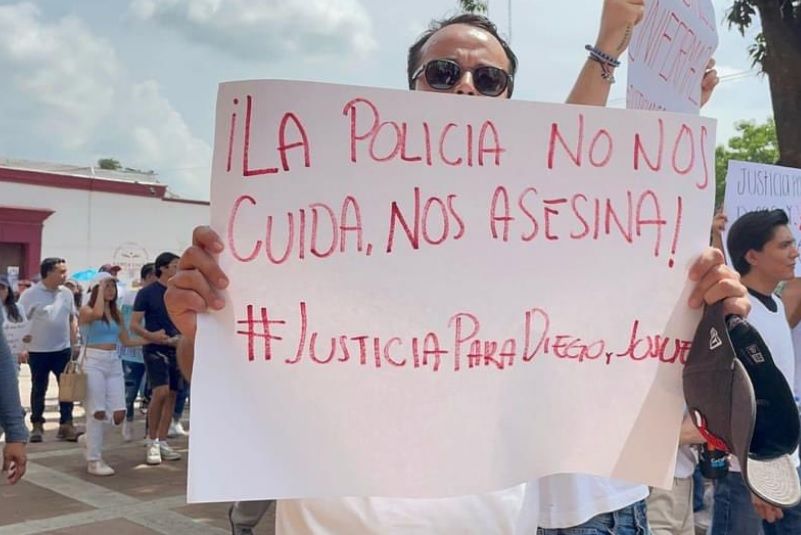 ¡LA POLICIA NO NOS
CUIDA, NOS ASESINA!
#JUSTICIAPARADIEGO y JOSUE
ENFERME
JUSTICIA P